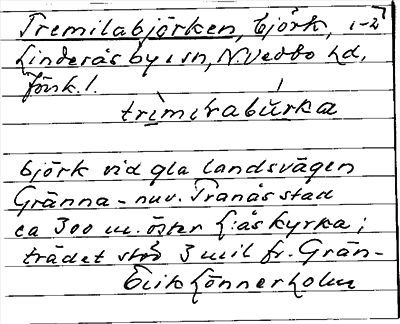 Tremilabjörken, björk, 1-2
Linderås by o sn, N. Vedbo hd,
förk. l.
trìmiƚrabúrka
björk vid gla landsvägen
Gränna - nuv. Tranås stad
ca 300 m. öster L:ås kyrka;
trädet stod 3 mil fr. Grän-
Erik Lönnerholm